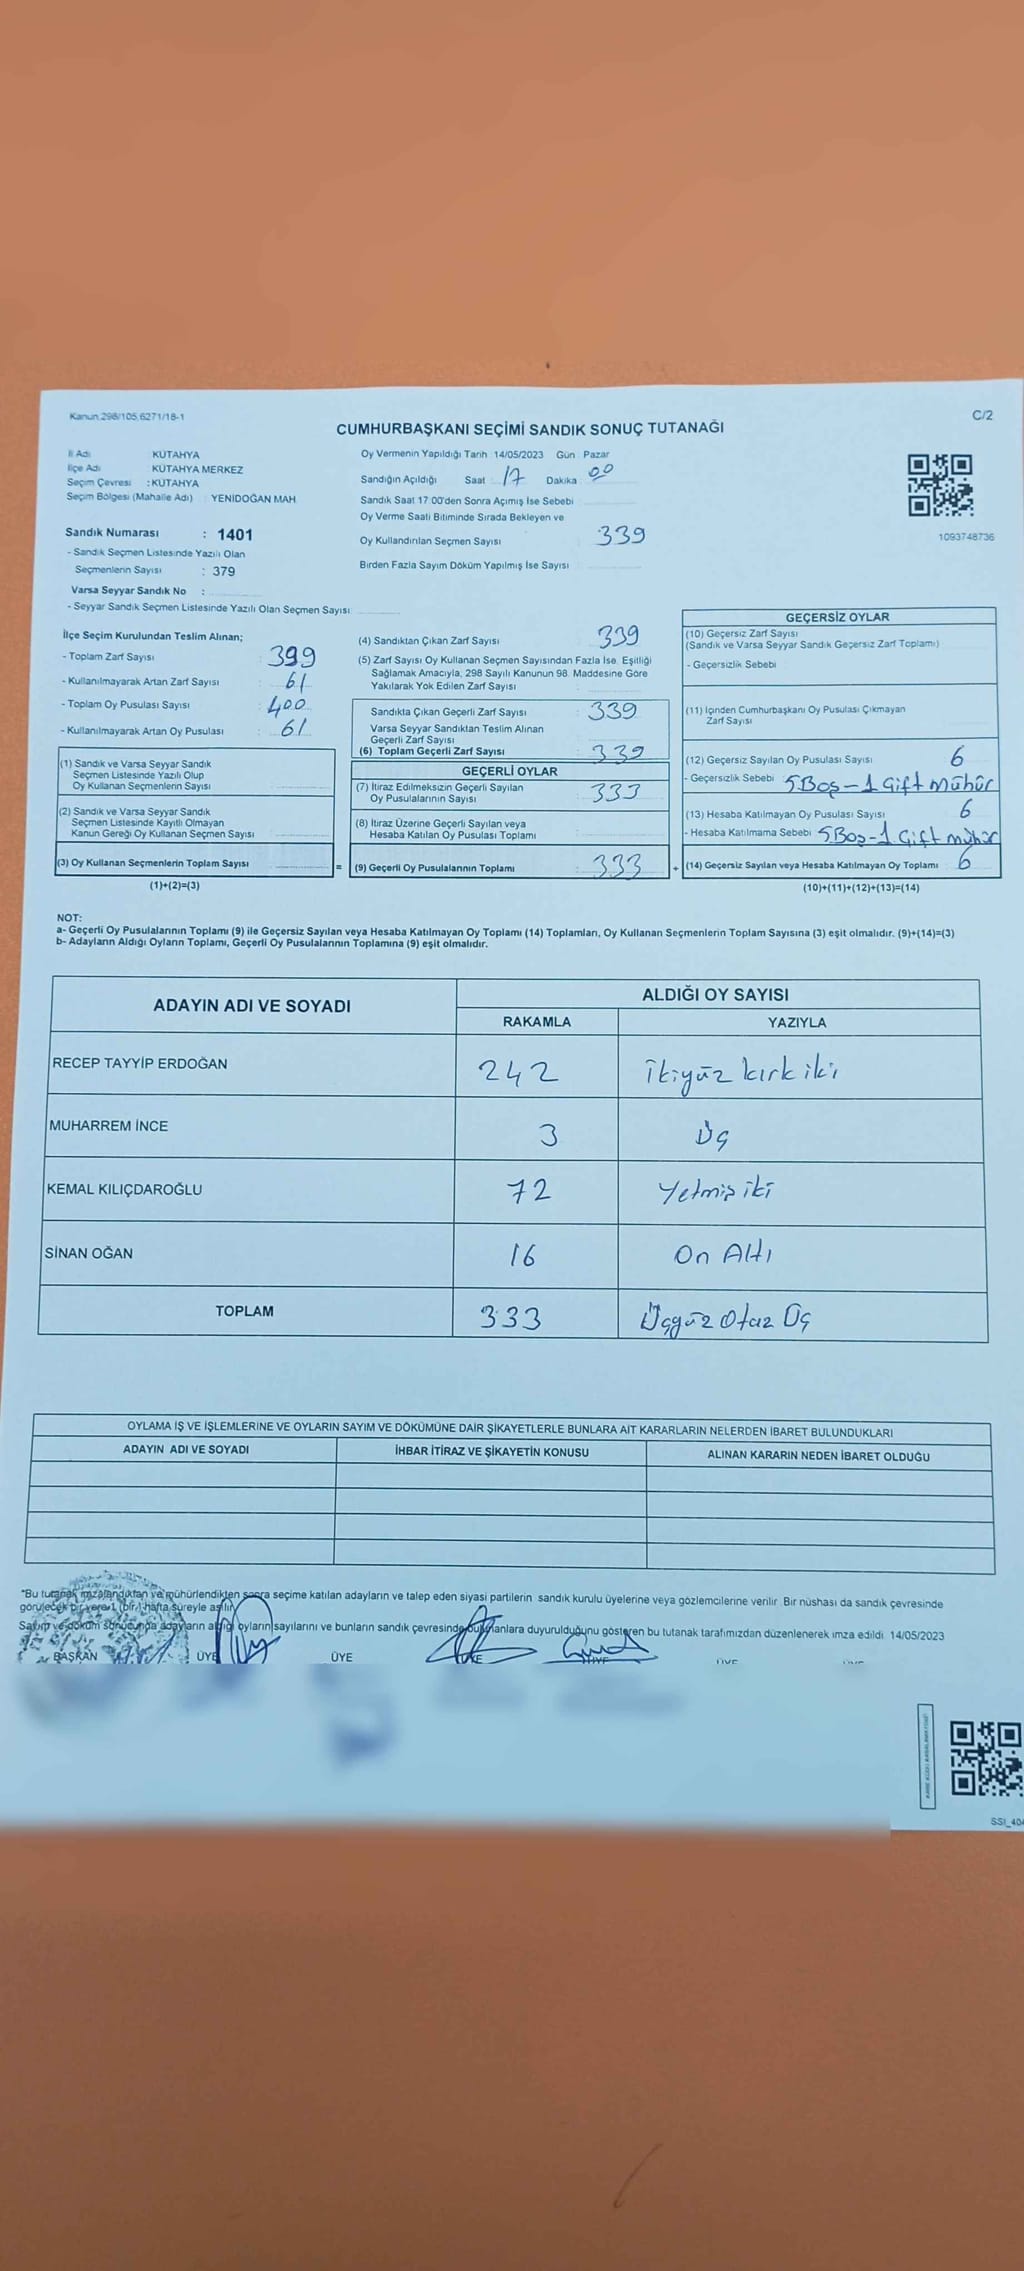 Kanun 298/105,6271/18-1
C/2
CUMHURBAŞKANI SEÇİMİ SANDIK SONUÇ TUTANAĞI
İl Adı KÜTAHYA
İlçe Adı : KÜTAHYA MERKEZ
Seçim Çevresi : KÜTAHYA
Seçim Bölgesi (Mahalle Adı) : YENİDOĞAN MAH
Sandık Numarası : 1401
- Sandık Seçmen Listesinde Yazılı Olan
Seçmenlerin Sayısı : 379
Varsa Seyyar Sandık No :
- Seyyar Sandık Seçmen Listesinde Yazılı Olan Seçmen Sayısı
Oy Vermenin Yapıldığı Tarih 14/05/2023 Gün Pazar
Sandığın Açıldığı Saat 17 Dakika 00
Sandık Saat 17:00'den Sonra Açımış İse Sebebi
Oy Verme Saati Bitiminde Sırada Bekleyen ve
Oy Kullandırılan Seçmen Sayısı 339
Birden Fazla Sayım Döküm Yapılmış İse Sayısı
1093748736
İlçe Seçim Kurulundan Teslim Alınan;
- Toplam Zarf Sayısı : 399
- Kullanılmayarak Artan Zarf Sayısı : 61
- Toplam Oy Pusulası Sayısı : 400
- Kullanılmayarak Artan Oy Pusulası : 61
(1) Sandık ve Varsa Seyyar Sandık
Seçmen Listesinde Yazılı Olup
Oy Kullanan Seçmenlerin Sayısı
(2) Sandık ve Varsa Seyyar Sandık
Seçmen Listesinde Kayıtlı Olmayan
Kanun Gereği Oy Kullanan Seçmen Sayısı
(3) Oy Kullanan Seçmenlerin Toplam Sayısı
=
(1)+(2)=(3)
(4) Sandıktan Çıkan Zarf Sayısı 339
(5) Zarf Sayısı Oy Kullanan Seçmen Sayısından Fazla İse, Eşitliği
Sağlamak Amacıyla, 298 Sayılı Kanunun 98. Maddesine Göre
Yakılarak Yok Edilen Zarf Sayısı
Sandıkta Çıkan Geçerli Zarf Sayısı 339
Varsa Seyyar Sandıktan Teslim Alınan
Geçerli Zarf Sayısı
(6) Toplam Geçerli Zarf Sayısı 339
GEÇERLİ OYLAR
(7) İtiraz Edilmeksizin Geçerli Sayılan
Oy Pusulalarının Sayısı 333
(8) İtiraz Üzerine Geçerli Sayılan veya
Hesaba Katılan Oy Pusulası Toplamı
(9) Geçerli Oy Pusulalarının Toplamı 333
+
GEÇERSİZ OYLAR
(10) Geçersiz Zarf Sayısı
(Sandık ve Varsa Seyyar Sandık Geçersiz Zarf Toplamı)
- Geçersizlik Sebebi
(11) İçinden Cumhurbaşkanı Oy Pusulası Çıkmayan
Zarf Sayısı
(12) Geçersiz Sayılan Oy Pusulası Sayısı 6
- Geçersizlik Sebebi 5 Boş-1 Çift Mühür
(13) Hesaba Katılmayan Oy Pusulası Sayısı 6
- Hesaba Katılmama Sebebi 5 Boş-1 Çift mühür
(14) Geçersiz Sayılan veya Hesaba Katılmayan Oy Toplamı 6
(10)+(11)+(12)+(13)=(14)
NOT:
a- Geçerli Oy Pusulalarının Toplamı (9) ile Geçersiz Sayılan veya Hesaba Katılmayan Oy Toplamı (14) Toplamları, Oy Kullanan Seçmenlerin Toplam Sayısına (3) eşit olmalıdır. (9)+(14)=(3)
b- Adayların Aldığı Oyların Toplamı, Geçerli Oy Pusulalarının Toplamına (9) eşit olmalıdır.
ADAYIN ADI VE SOYADI
ALDIĞI OY SAYISI
RAKAMLA YAZIYLA
RECEP TAYYİP ERDOĞAN 242 İkiyüz kırk iki
MUHARREM İNCE 3 Üç
KEMAL KILIÇDAROĞLU 72 Yetmiş iki
SİNAN OĞAN 16 On Altı
TOPLAM 333 Üçyüz Otuz Üç
OYLAMA İŞ VE İŞLEMLERİNE VE OYLARIN SAYIM VE DÖKÜMÜNE DAİR ŞİKAYETLERLE BUNLARA AİT KARARLARIN NELERDEN İBARET BULUNDUKLARI
ADAYIN ADI VE SOYADI İHBAR İTİRAZ VE ŞİKAYETİN KONUSU ALINAN KARARIN NEDEN İBARET OLDUĞU
*Bu tutanak imzalandıktan ve mühürlendikten sonra seçime katılan adayların ve talep eden siyasi partilerin sandık kurulu üyelerine veya gözlemcilerine verilir. Bir nüshası da sandık çevresinde
görülecek bir yere 1 (bir) hafta süreyle asılır.
Sayım ve döküm sonucunda adayların aldığı oyların sayılarını ve bunların sandık çevresinde bulunanlara duyurulduğunu gösteren bu tutanak tarafımızdan düzenlenerek imza edildi. 14/05/2023
BAŞKAN ÜYE ÜYE ÜYE ÜYE ÜYE ÜYE